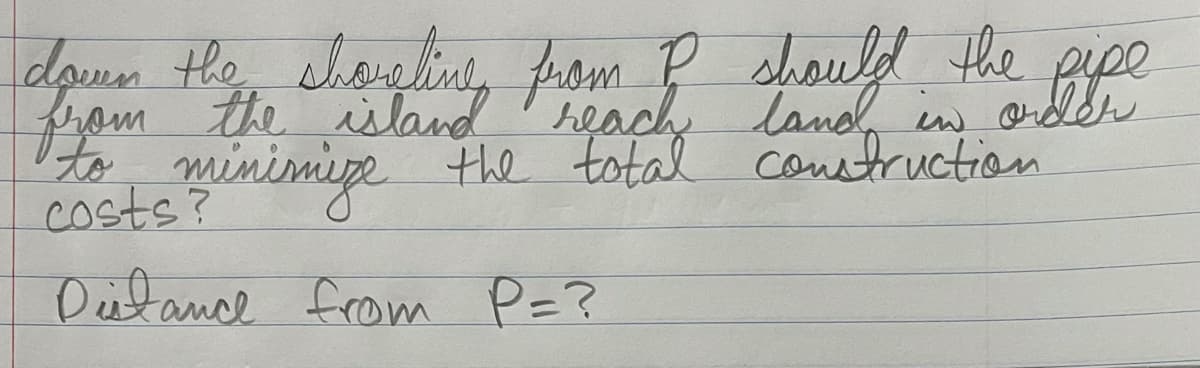 down the shoreline, from P should the pipe
from the island reach land in order
to minimize the total construction
costs?
Distance from P=?